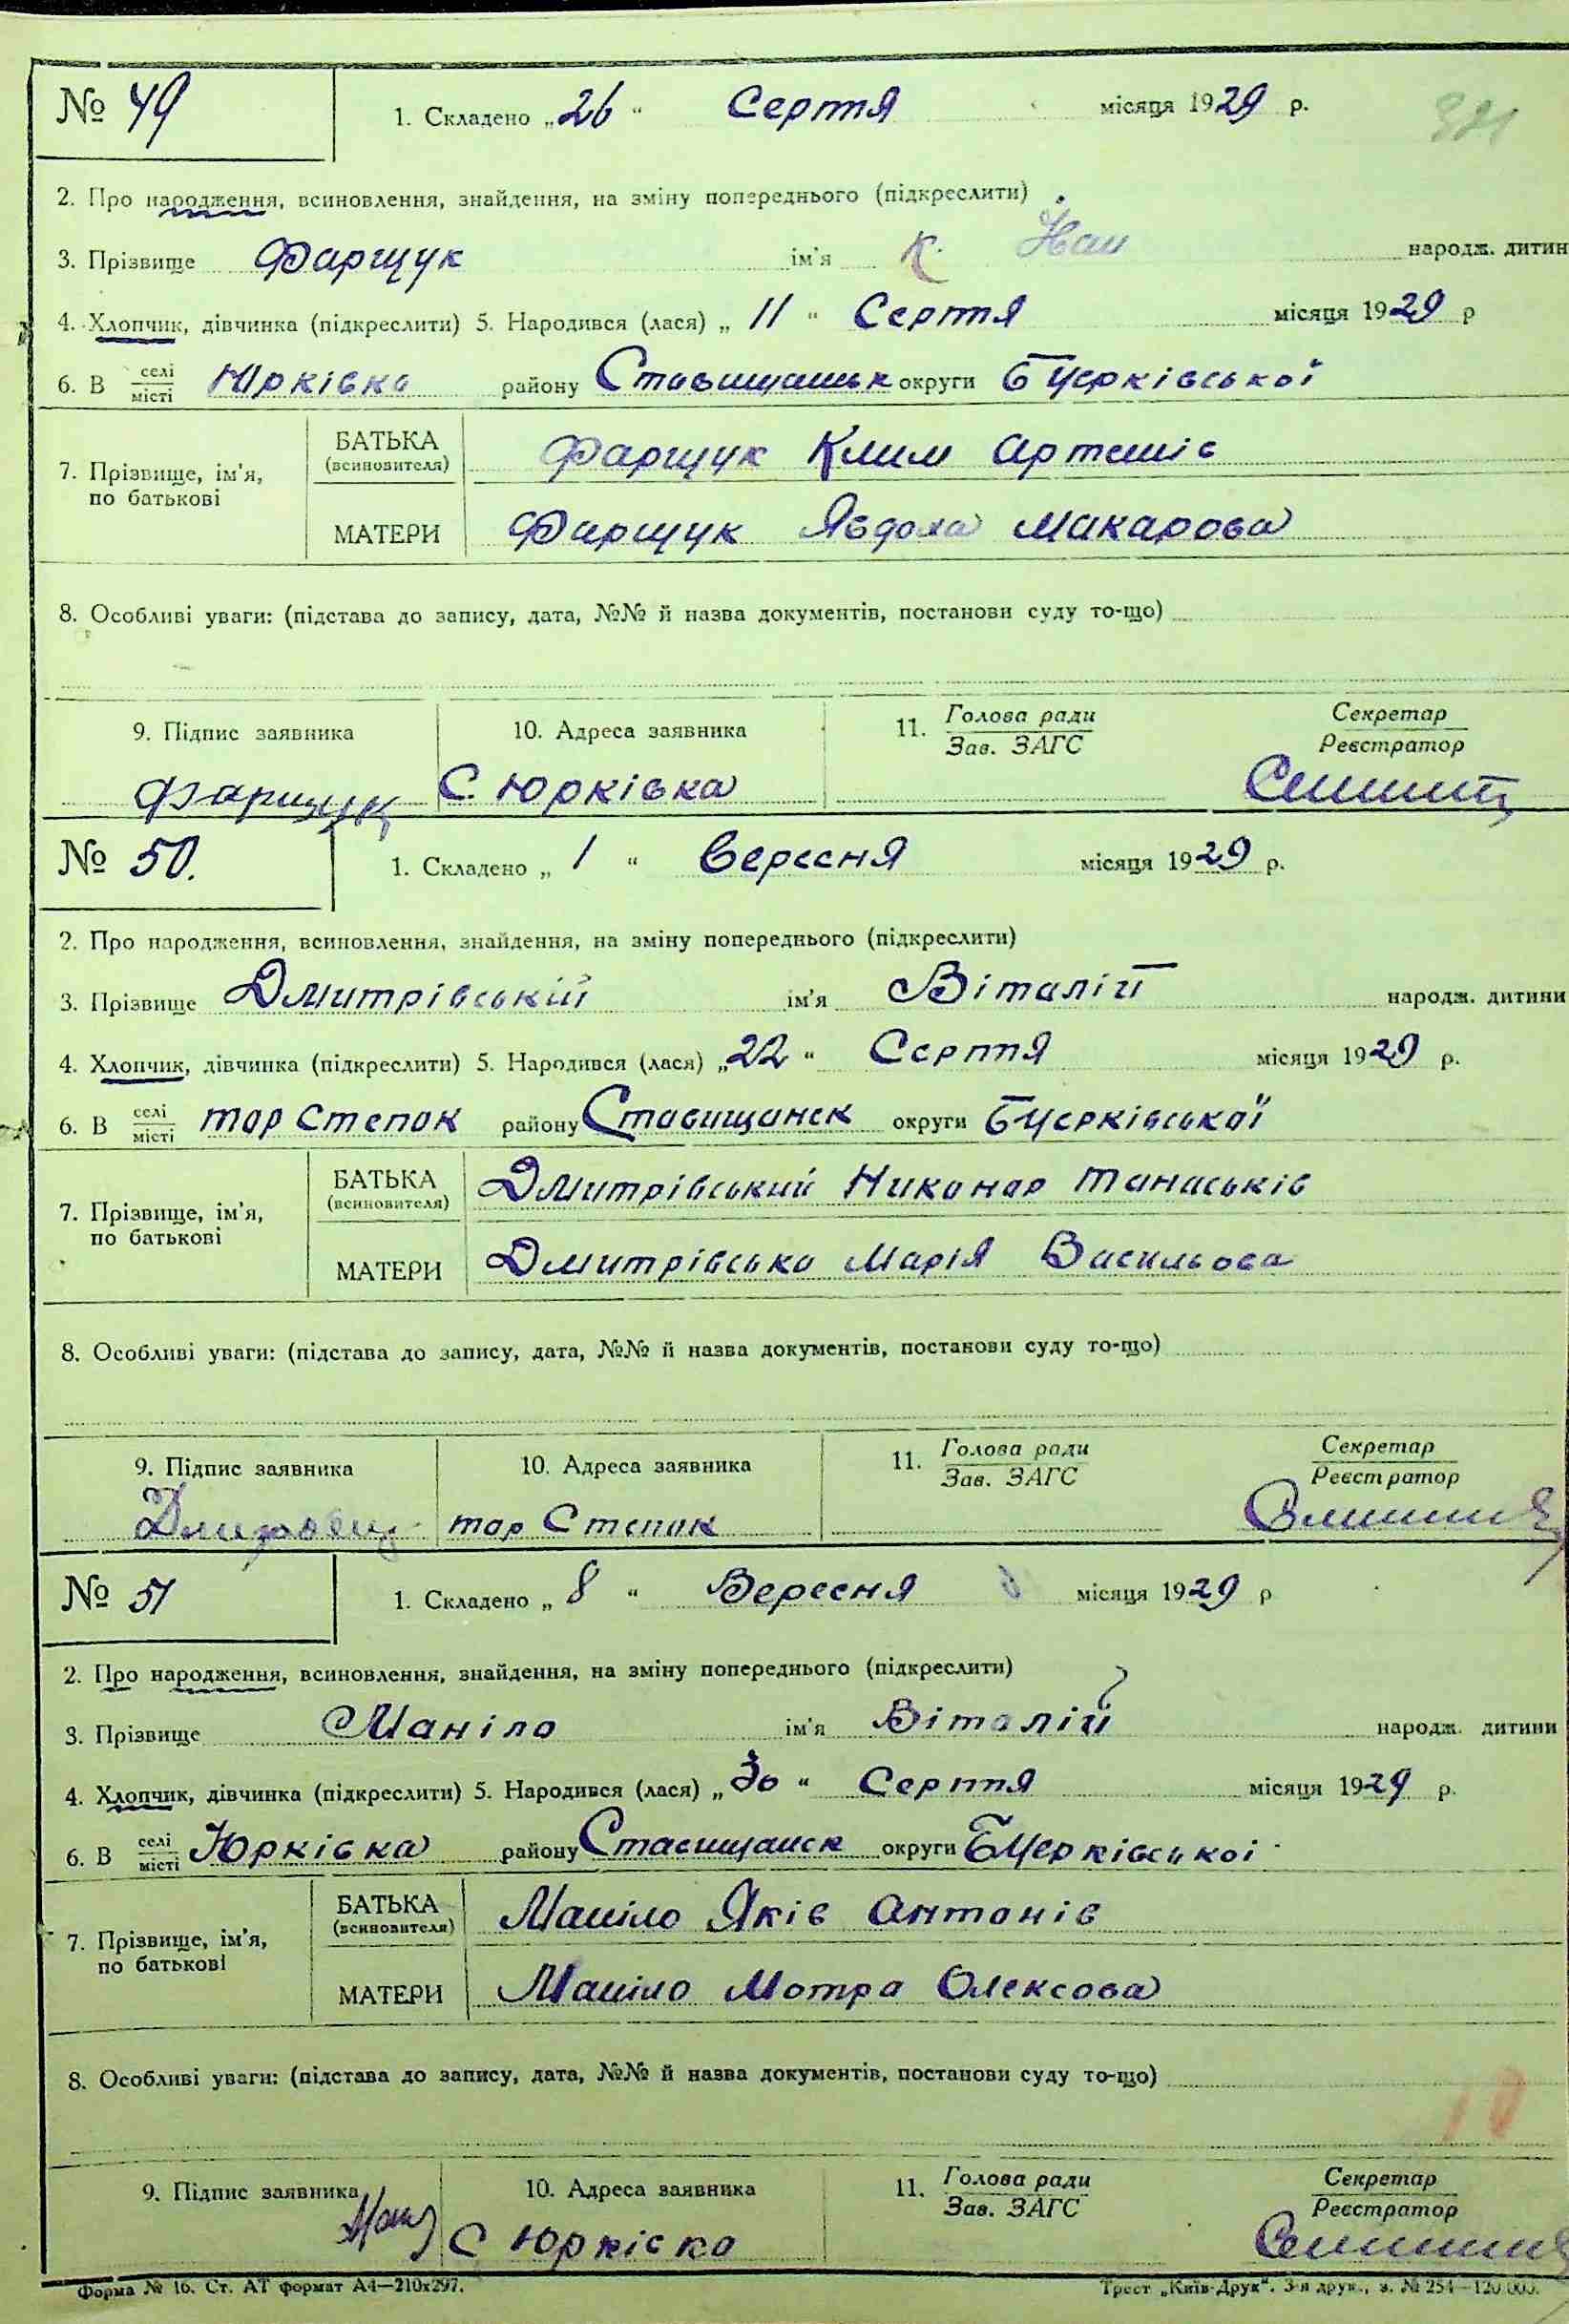 № 49
1. Складено „26" Серпня місяця 1929 р.
2. Про народження, всиновлення, знайдення, на зміну попереднього (підкреслити)
3. Прізвище Фарщук ім'я народж. дитин
4. Хлопчик, дівчинка (підкреслити) 5. Народився (лася) „11" Серпня місяця 1929 р
6. В селі місті Юрківка району Ставищанськ округи БЦерківської
7. Прізвище, ім'я, по батькові
БАТЬКА (всиновителя) Фарщук Клим Артемів
МАТЕРИ Фарщук Явдоха Макарова
8. Особливі уваги: (підстава до запису, дата, №№ й назва документів, постанови суду то-що)
9. Підпис заявника 10. Адреса заявника 11. Голова ради Зав. ЗАГС Секретар Реєстратор
Фарщук С. Юрківка
№ 50.
1. Складено „1" Вересня місяця 1929 р.
2. Про народження, всиновлення, знайдення, на зміну попереднього (підкреслити)
3. Прізвище Дмитрівській ім'я Віталій народж. дитини
4. Хлопчик, дівчинка (підкреслити) 5. Народився (лася) „22" Серпня місяця 1929 р.
6. В селі місті тор Степок району Ставищанск округи БЦерківської
7. Прізвище, ім'я, по батькові
БАТЬКА (всиновителя) Дмитрівський Никанор Танаськів
МАТЕРИ Дмитрівська Марія Васильова
8. Особливі уваги: (підстава до запису, дата, №№ й назва документів, постанови суду то-що)
9. Підпис заявника 10. Адреса заявника 11. Голова ради Зав. ЗАГС Секретар Реєстратор
тор Степок
№ 51
1. Складено „8" Вересня місяця 1929 р
2. Про народження, всиновлення, знайдення, на зміну попереднього (підкреслити)
3. Прізвище Маніло ім'я Віталій народж. дитини
4. Хлопчик, дівчинка (підкреслити) 5. Народився (лася) „30" Серпня місяця 1929 р.
6. В селі місті Юрківка району Ставищанск округи БЦерківської
7. Прізвище, ім'я, по батькові
БАТЬКА (всиновителя) Маніло Яків Антонів
МАТЕРИ Маніло Мотра Олексова
8. Особливі уваги: (підстава до запису, дата, №№ й назва документів, постанови суду то-що)
9. Підпис заявника 10. Адреса заявника 11. Голова ради Зав. ЗАГС Секретар Реєстратор
С Юрківка
Форма № 16. Ст. АТ формат А4—210x297. Трест „Київ-Друк". 3-я друк., з. № 254—120.000.